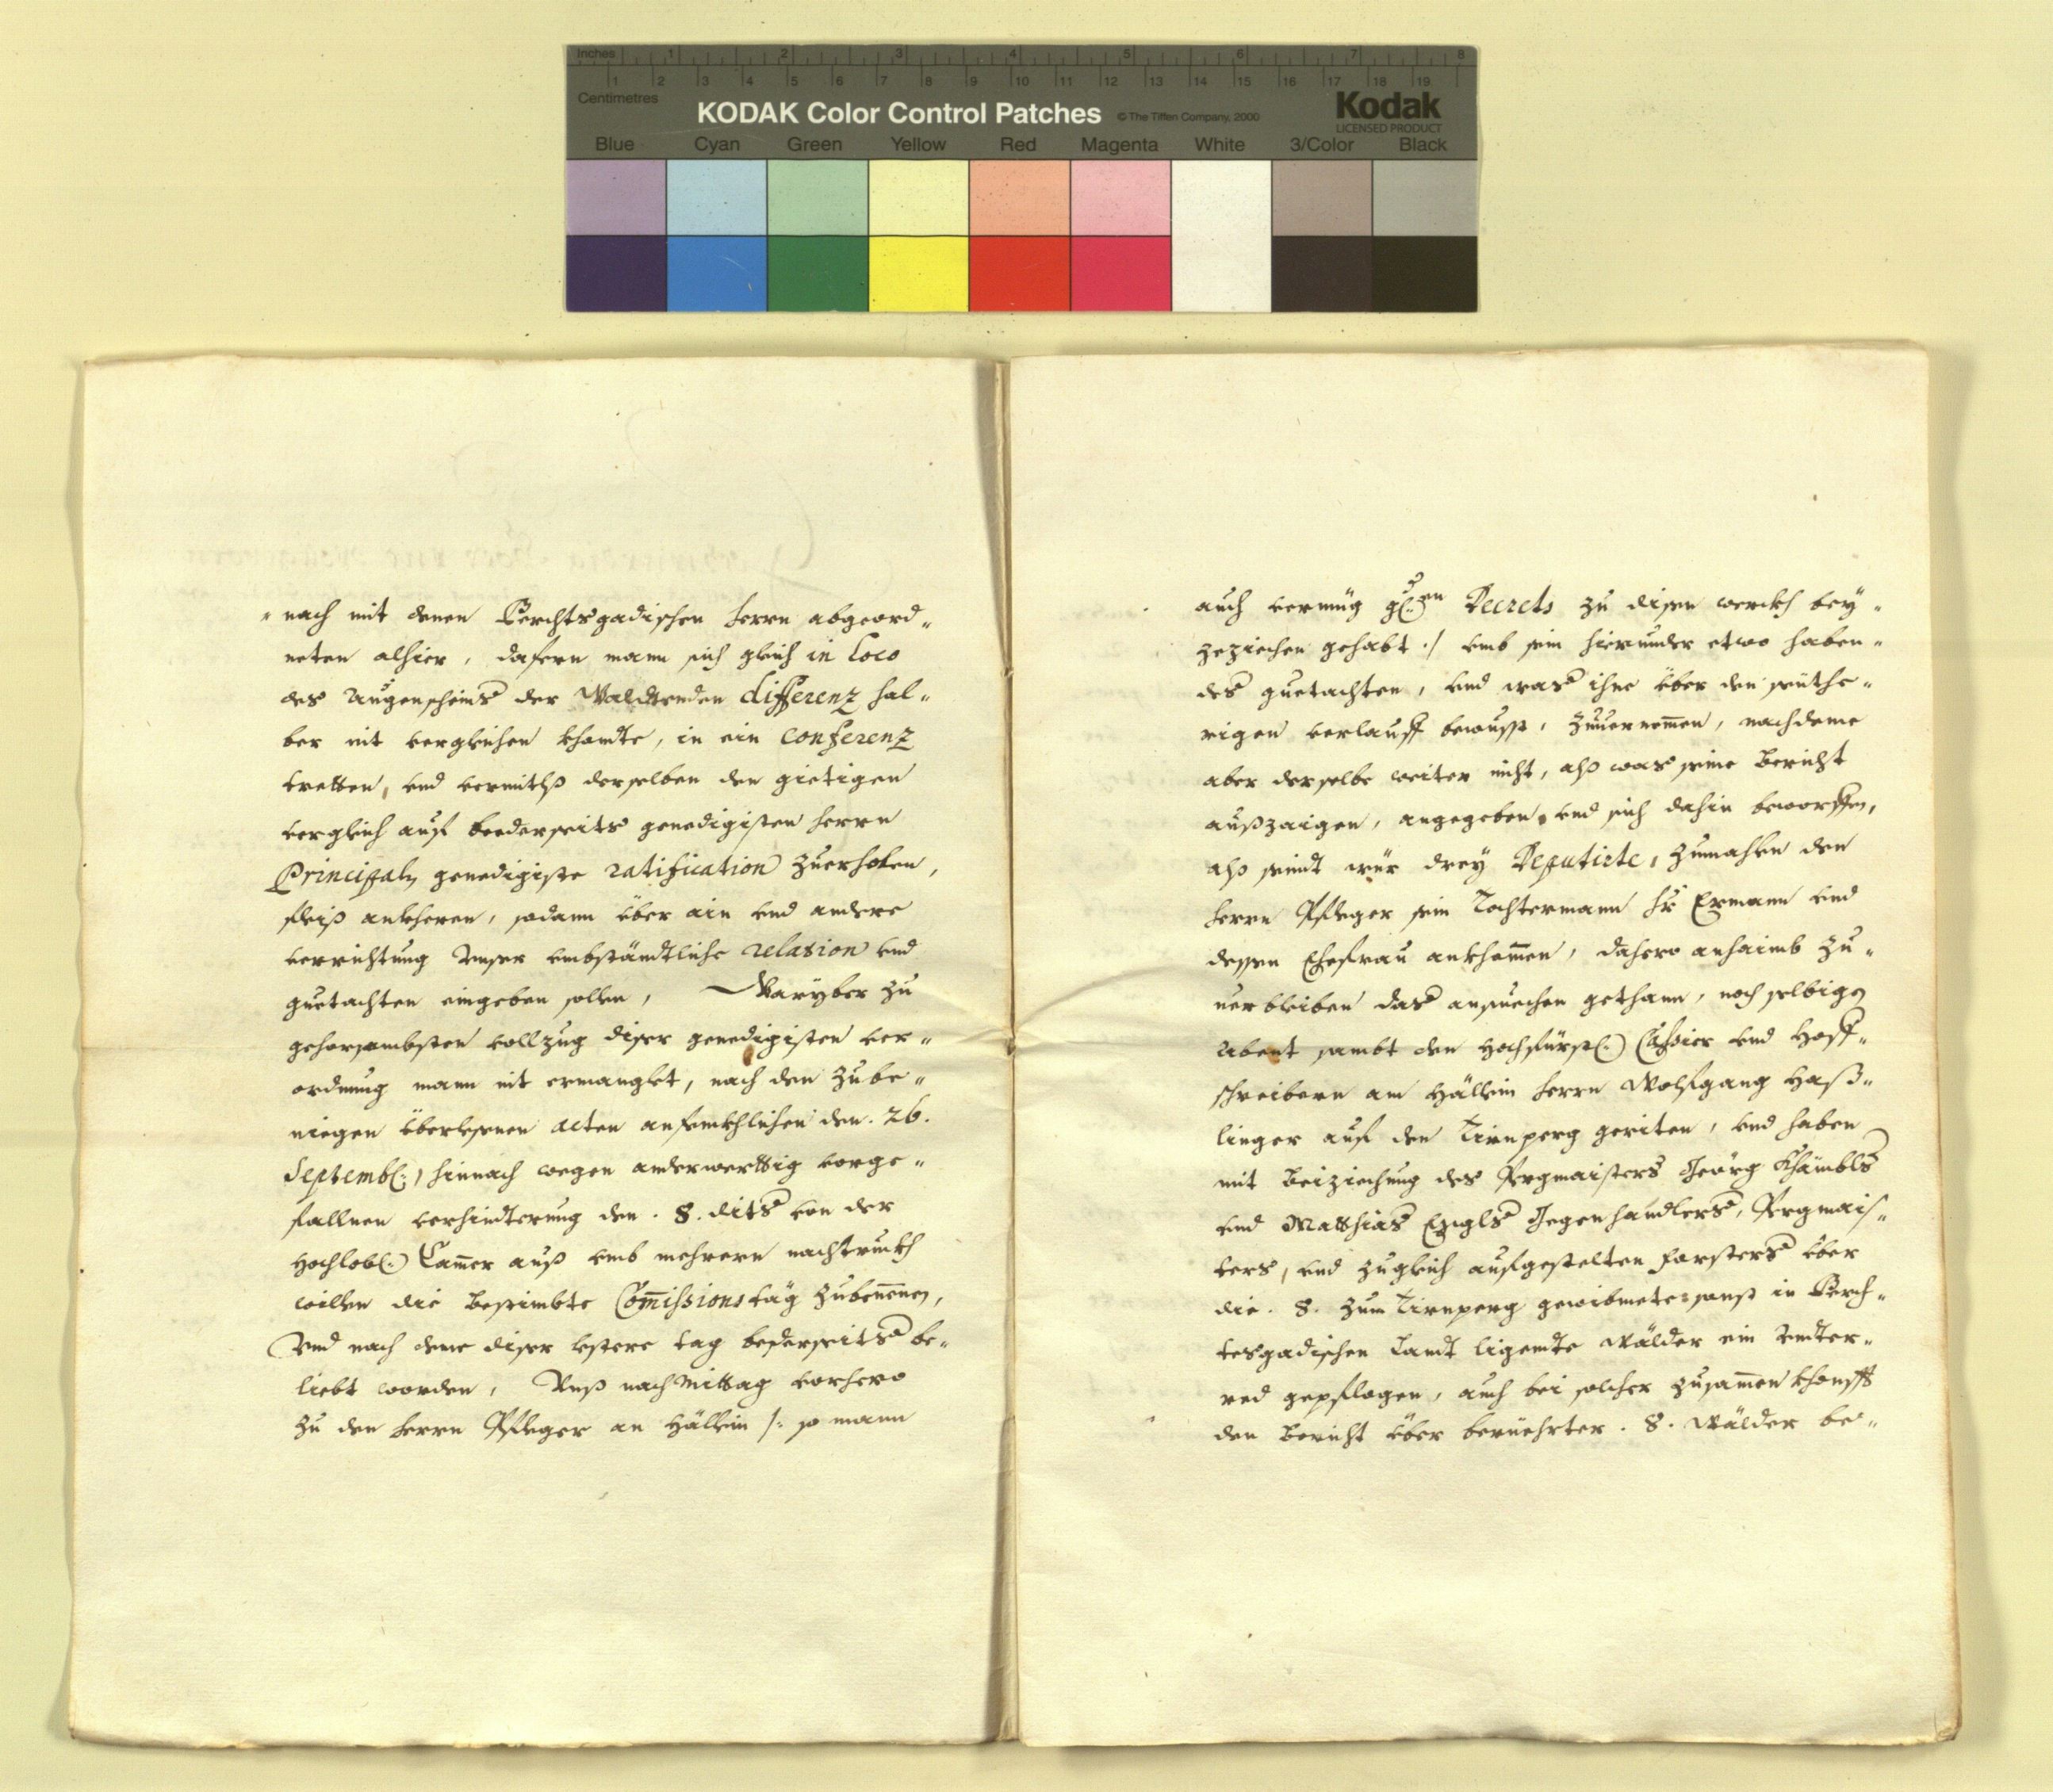 Inches 1 2 3 4 5 6 7 8
1 2 3 4 5 6 7 8 9 10 11 12 13 14 15 16 17 18 19
Centimetres
KODAK Color Control Patches © The Tiffen Company, 2000 Kodak
LICENSED PRODUCT
Blue Cyan Green Yellow Red Magenta White 3/Color Black
nach mit denen Berchtsgadischen herrn abgeord„
neten alhier, dafern mann sich gleich in Loco
des Augenscheins der Waldtenden differenz hal„
ber nit vergleichen khondte, in ein conferenz
tretten, vnd vermitlß derselben den gietigen
vergleich auf beederseits genedigisten herrn
Principaln genedigiste ratification zuerholen,
fleiß ankheren, sodann über ain vnd andere
verrichtung Vnser vmbständtliche relation vnd
guetachten eingeben sollen, Warÿber zu
gehorsambsten vollzug diser genedigisten ver„
ordnung mann nit ermanglet, nach den zube„
niegen überlesenen Acten anfenkhlichen den. 26.
Septemb(:) hinnach wegen anderwerttig vorge„
fallnen verhindterung den. 8. dits von der
Hochlob(:) Camer auß vmb mehrern nachtruckh
willen die bestimbte Comissions täg zubenenen,
Vnd nach deme diser lestere tag bederseits be„
liebt worden, Vnß nach Mittag vorhero
zu den herrn Pfleger an Hällein /: so mann
auch vermüg g(:)en Decrets zu disen werckh beÿ„
zeziechen gehabt :/ vmb sein hierunder etwo haben„
des guetachten, vnd was ihne über den seithe„
rigen verlauff bewusst, zuuernemen, nachdeme
aber derselbe weiter nicht, alß was seine Bericht
außzaigen, angegeben, vnd sich dahin beworffen,
alß seindt wür dreÿ Deputirte, zumahlen den
herrn Pfleger sein Tochtermann hr Ermann vnd
dessen Ehefrau ankhomen, dahero anhaimb zu„
uerbleiben das ansuechen gethann, noch selbigen
Abent sambt den Hochfürst(:) Cassier vnd Hoff„
schreibern am Hällein herrn Wolfgang Haß„
linger auf den Tirnperg geriten, vnd haben
mit beiziechung des Pergmaisters Georg Khämbls
vnd Matthias Gegenhandlers, Pergmais„
ters, vnd zugleich aufgestelten Forsters über
die. 8. zum Tirnperg gewidmete sonst in Berch„
tesgadischen Landt ligendte Wälder ein Vndter„
red gepflogen, auch bei solcher zusamen khonfft
den Bericht über beruehrter. 8. Wälder be„